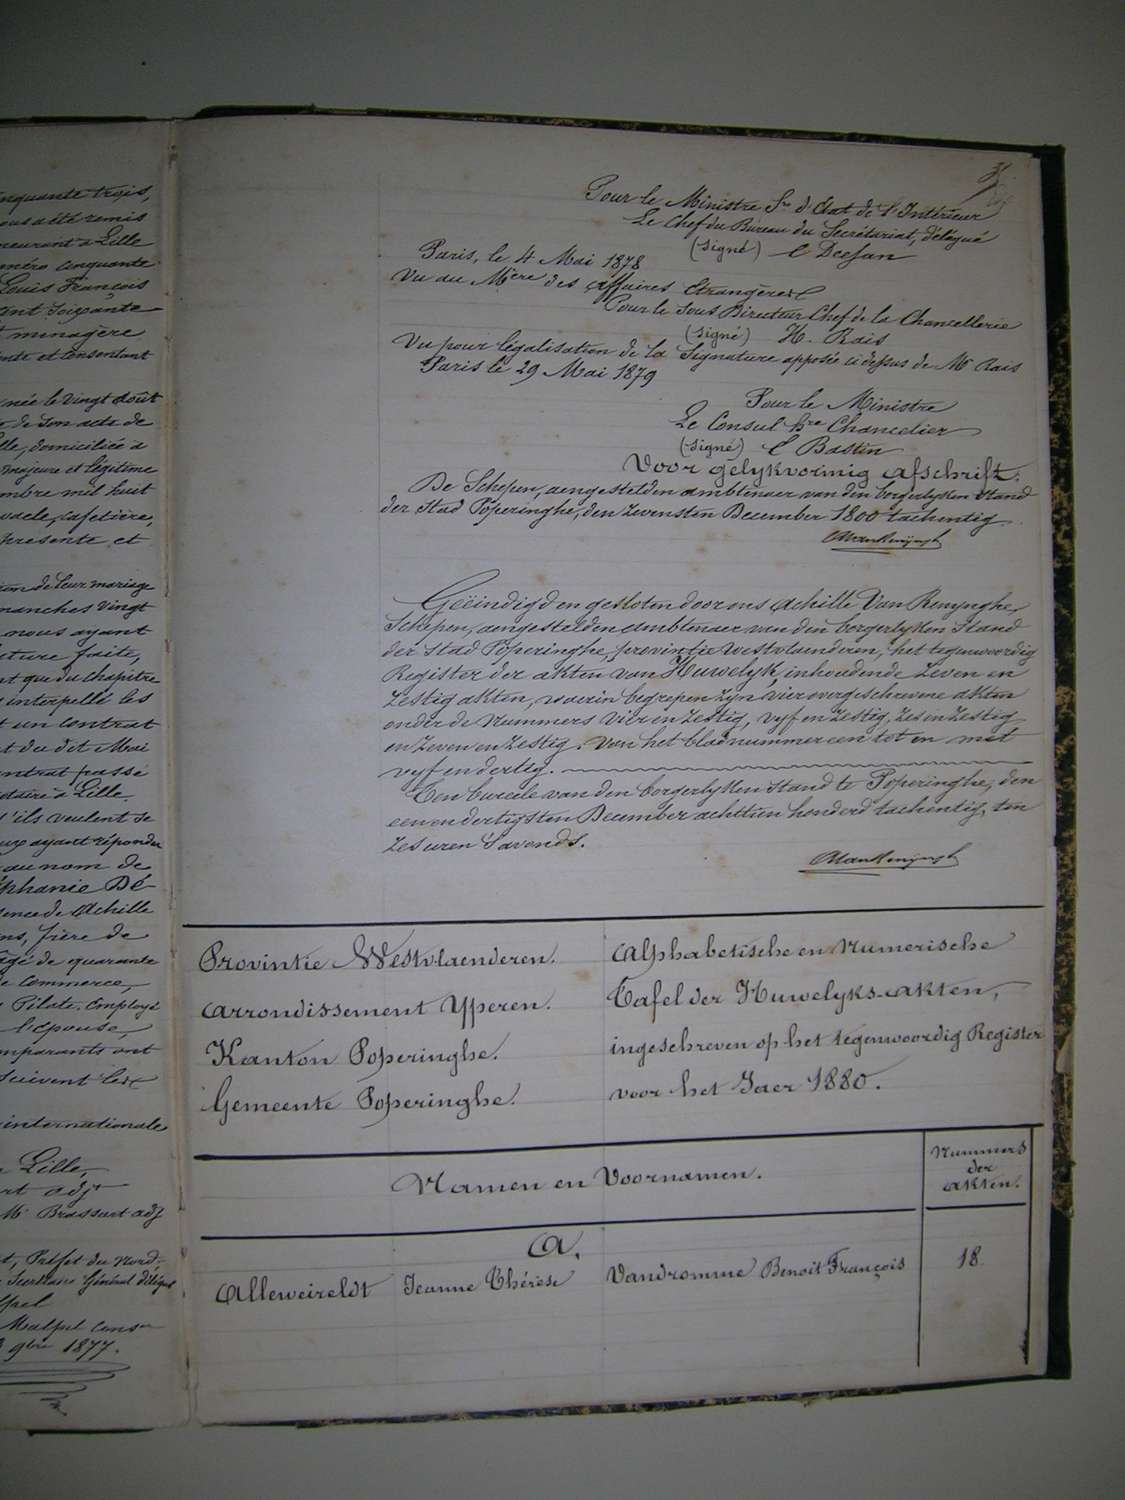 nquante trois,
ous a été remis
meurant à Lille
méro Cinquante
Louis François
ant Soixante
ménagère
ente et Consentant
née le vingt août
de son acte de
lle, domiciliée à
majeure et légitime
embre mil huit
cafetière,
présente et
ion de leur mariage
manches vingt
nous ayant
cture faite,
nt que du chapitre
interpellé les
t un contrat
t du dit Mai
contrat passé
notaire à Lille.
s'ils veulent se
eux ayant répondu
au nom de
éphanie Dé-
sence de Achille
ns, frère de
âgé de quarante
de Commerce,
Pilate, Employé
l'épouse,
mparants ont
suivent les
internationale
à Lille,
rt adjt
Mr Brassart adj
t, Préfet du Nord,
Secrétaire Général délégué
Malpel Consr
9bre 1877.
35
Pour le Ministre Sre d'Etat de l'Intérieur
Le Chef du Bureau du Secrétariat, délégué
(Signé)
Paris, le 4 Mai 1878
Vu au Mère des Affaires Etrangères
Pour le Sous Directeur Chef de la Chancellerie
(Signé) H. Rais
Vu pour légalisation de la Signature apposée ci dessus de Mr Rais
Paris le 29 Mai 1879
Pour le Ministre
Le Consul hre Chancelier
(Signé) E Bastin
Voor gelykvormig afschrift:
De Schepen, aengestelden ambtenaer van den borgerlyken Stand
der Stad Poperinghe, den zevensten December 1800 tachentig.
AVanRenynghe
Geëindigd en gesloten door ons Achille Van Renynghe,
Schepen, aengestelden ambtenaer van den borgerlyken Stand
der Stad Poperinghe, provintie Westvlaenderen, het tegenwoordig
Register der akten van Huwelyk, inhoudende zeven en
zestig akten, waerin begrepen zyn vier overgeschrevene akten
onder de nummers vier en zestig, vyf en zestig, zes en zestig
en zeven en zestig. Van het blad nummer een tot en met
vyf en dertig.
Ten bureele van den borgerlyken Stand te Poperinghe, den
een en dertigsten December achttien honderd tachentig, ten
zes uren S'avonds.
AVanRenynghe
Provintie Westvlaenderen.
Arrondissement Yperen.
Kanton Poperinghe.
Gemeente Poperinghe.
Alphabetische en Numerische
Tafel der Huwelyks-akten,
ingeschreven op het tegenwoordig Register
voor het Jaer 1880.
Namen en Voornamen.
Nummers
der
akten.
A.
Alleweireldt Jeanne Thérèse Vandromme Benoit François 18.